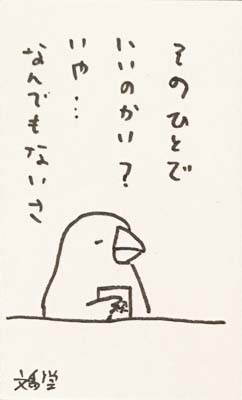 そのひとで
いいのかい？
いや…
なんでもないさ